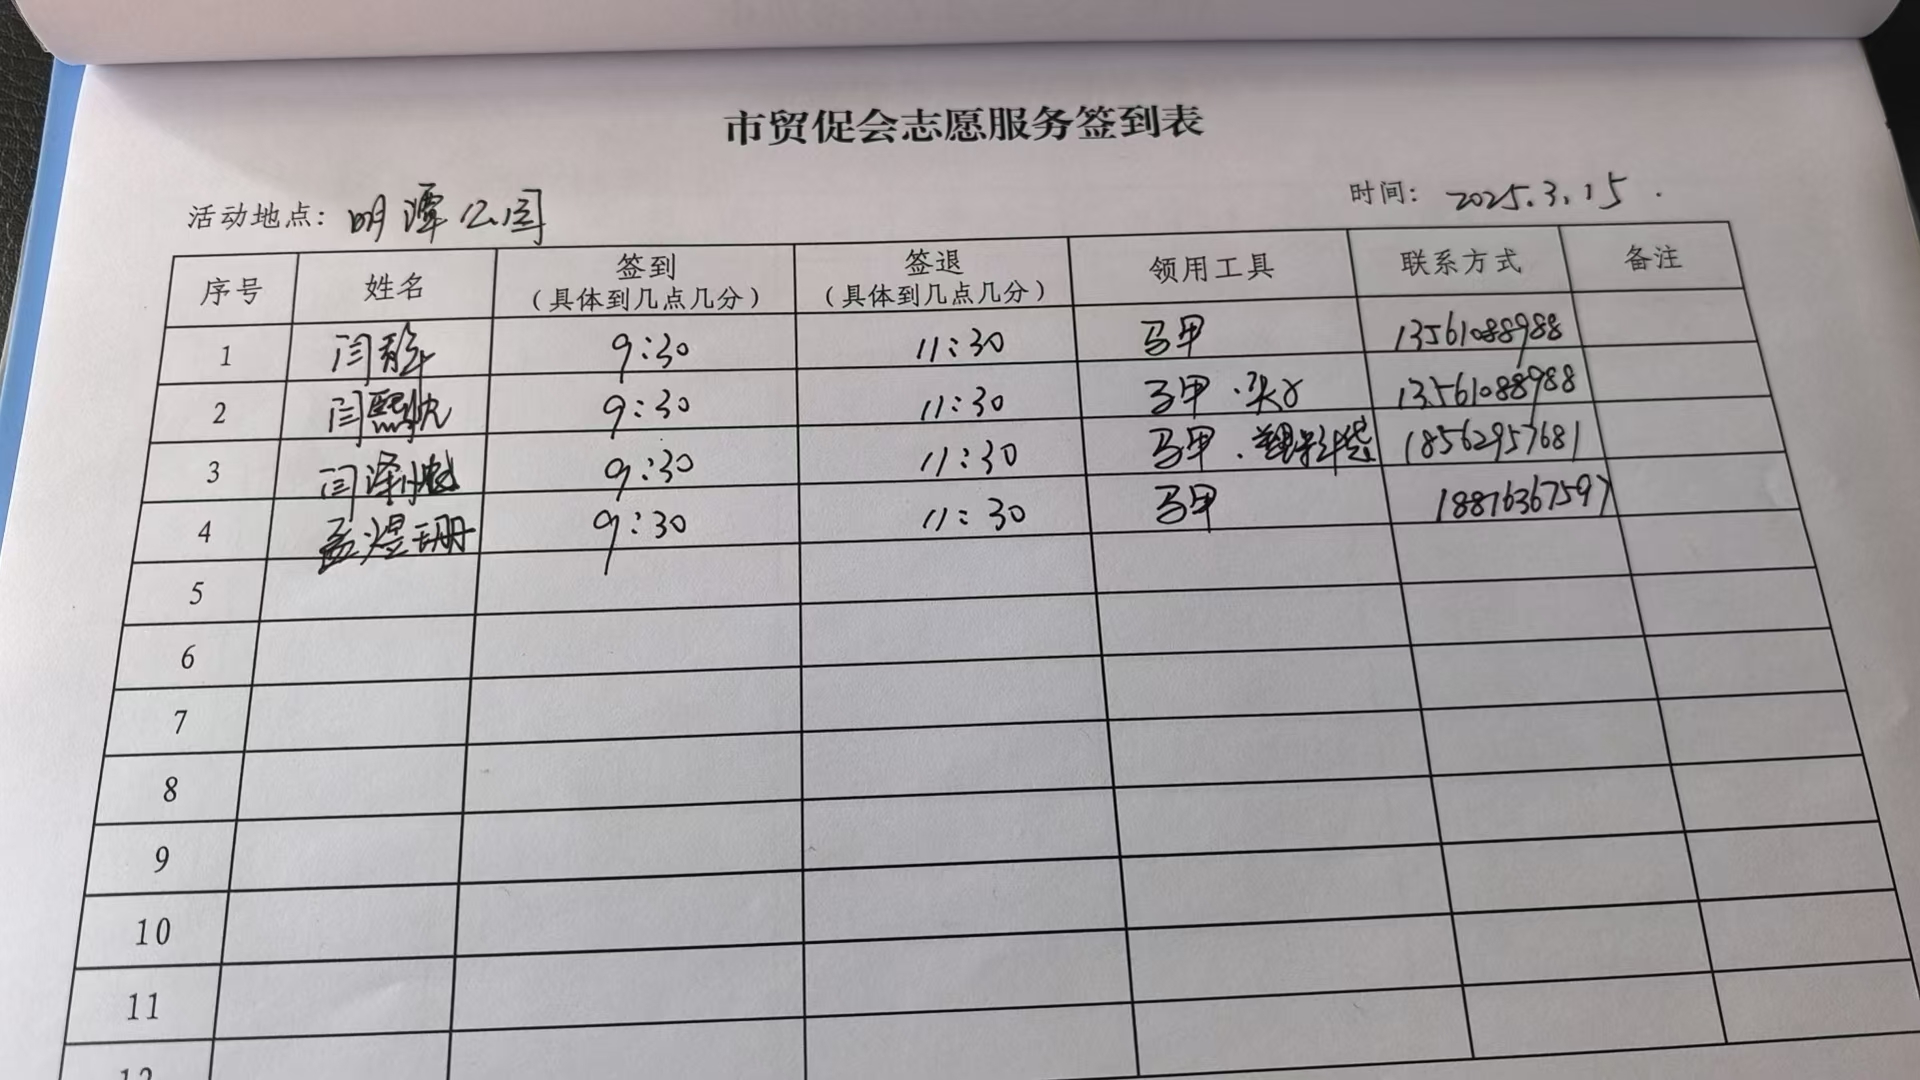 市贸促会志愿服务签到表
活动地点: 明潭公园 时间: 2025.3.15.
序号 姓名 签到 (具体到几点几分) 签退 (具体到几点几分) 领用工具 联系方式 备注
1 闫静 9:30 11:30 马甲 13561088988
2 闫熙 9:30 11:30 马甲 13561088988
3 闫泽 9:30 11:30 马甲、塑料袋 18562957681
4 孟煜珊 9:30 11:30 马甲 18876367597
5
6
7
8
9
10
11
12